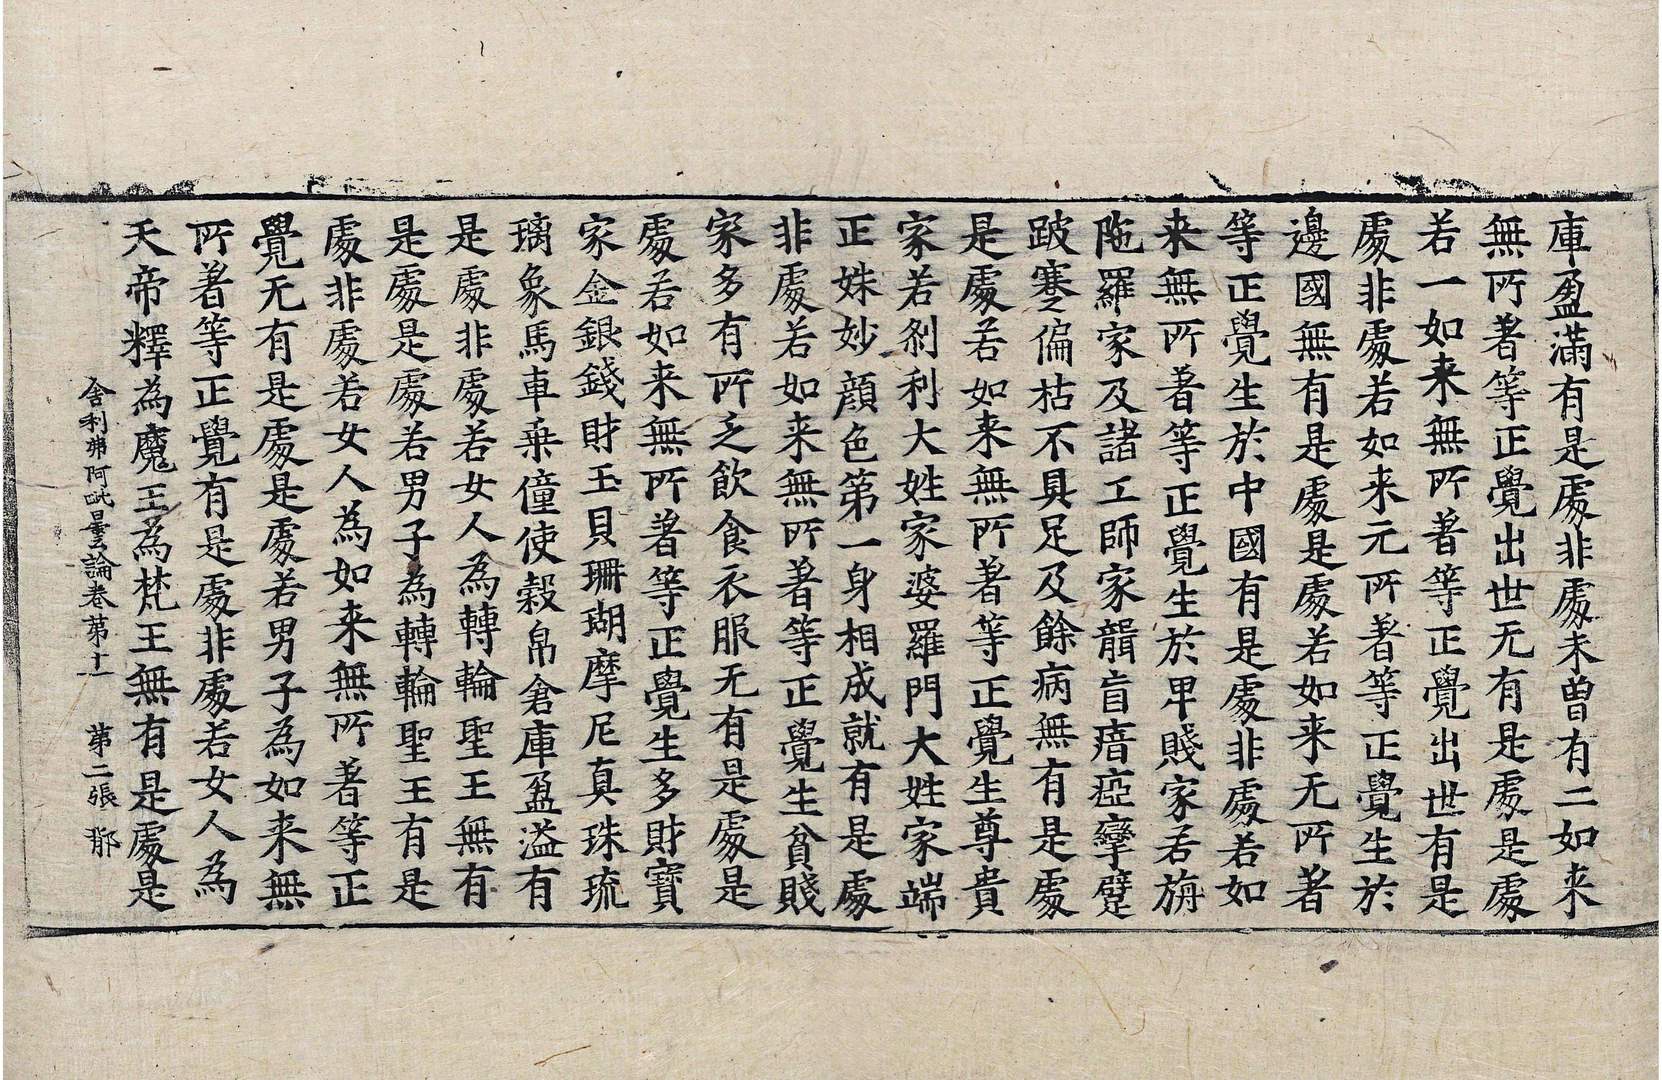 庫盈滿有是處非處未曾有二如来
無所著等正覺出世无有是處是處
若一如来無所著等正覺出世有是
處非處若如来无所著等正覺生於
邊國無有是處是處若如来无所著
等正覺生於中國有是處非處若如
来無所著等正覺生於卑賤家若旃
陁羅家及諸工師家聾盲瘖瘂攣躄
跛蹇偏枯不具足及餘病無有是處
是處若如来無所著等正覺生尊貴
家若刹利大姓家婆羅門大姓家端
正姝妙顔色第一身相成就有是處
非處若如来無所著等正覺生貧賤
家多有所乏飲食衣服无有是處是
處若如来無所著等正覺生多財寶
家金銀錢財玉貝珊瑚摩尼真珠琉
璃象馬車乗僮使糓帛倉庫盈溢有
是處非處若女人為轉輪聖王無有
是處是處若男子為轉輪聖王有是
處非處若女人為如来無所著等正
覺无有是處是處若男子為如来無
所著等正覺有是處非處若女人為
天帝釋為魔王為梵王無有是處是
舍利弗阿毗曇論卷第十一 第二張 郍